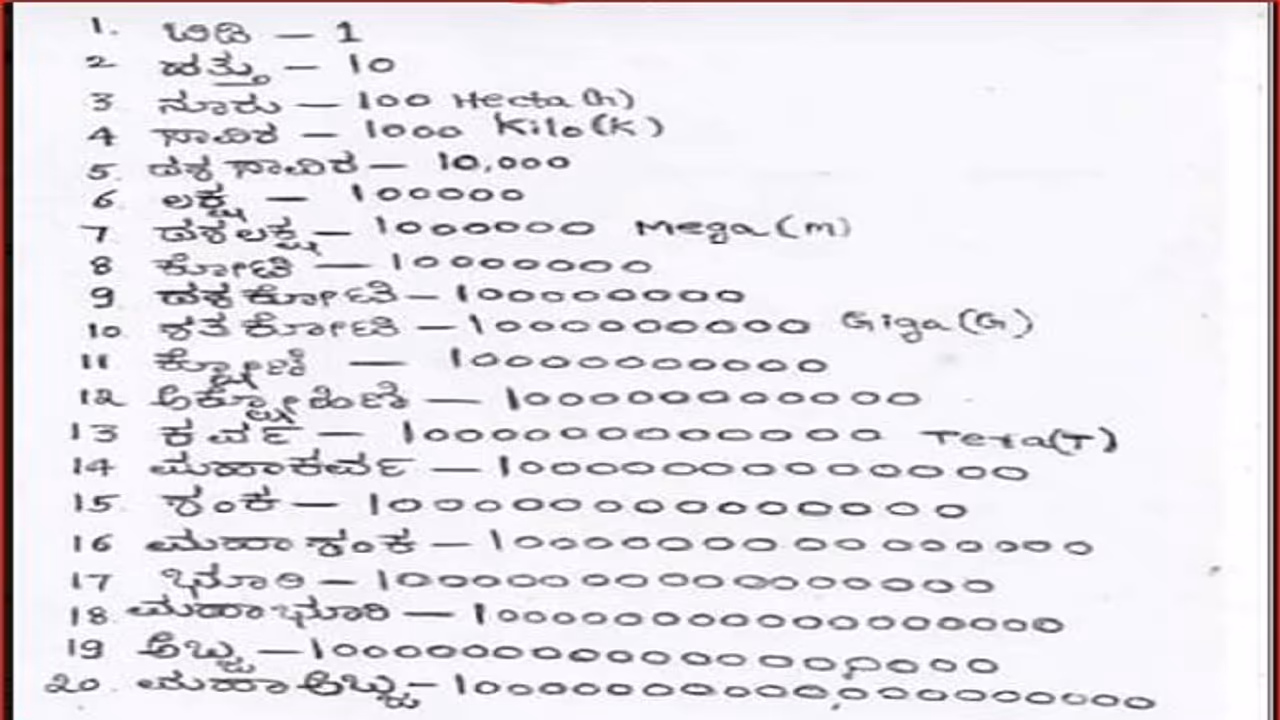 1. ಬಿಡಿ — 1
2 ಹತ್ತು — 10
3 ನೂರು — 100 Hecta (h)
4 ಸಾವಿರ — 1000 Kilo (K)
5. ದಶ ಸಾವಿರ — 10,000
6. ಲಕ್ಷ — 100000
7 ದಶಲಕ್ಷ — 1000000 Mega (m)
8 ಕೋಟಿ — 10000000
9 ದಶ ಕೋಟಿ — 100000000
10 ಶತ ಕೋಟಿ — 1000000000 Giga (G)
11 ಕ್ಷೋಣಿ — 10000000000
12 ಅಕ್ಷೋಹಿಣಿ — 100000000000
13 ಕರ್ವ — 1000000000000 Tera (T)
14 ಮಹಾಕರ್ವ — 10000000000000
15 ಶಂಕ — 100000000000000
16 ಮಹಾ ಶಂಕ — 1000000000000000
17 ಭೂರಿ — 10000000000000000
18 ಮಹಾ ಭೂರಿ — 100000000000000000
19 ಅಬ್ಜು — 1000000000000000000
20. ಮಹಾ ಅಬ್ಜು — 10000000000000000000